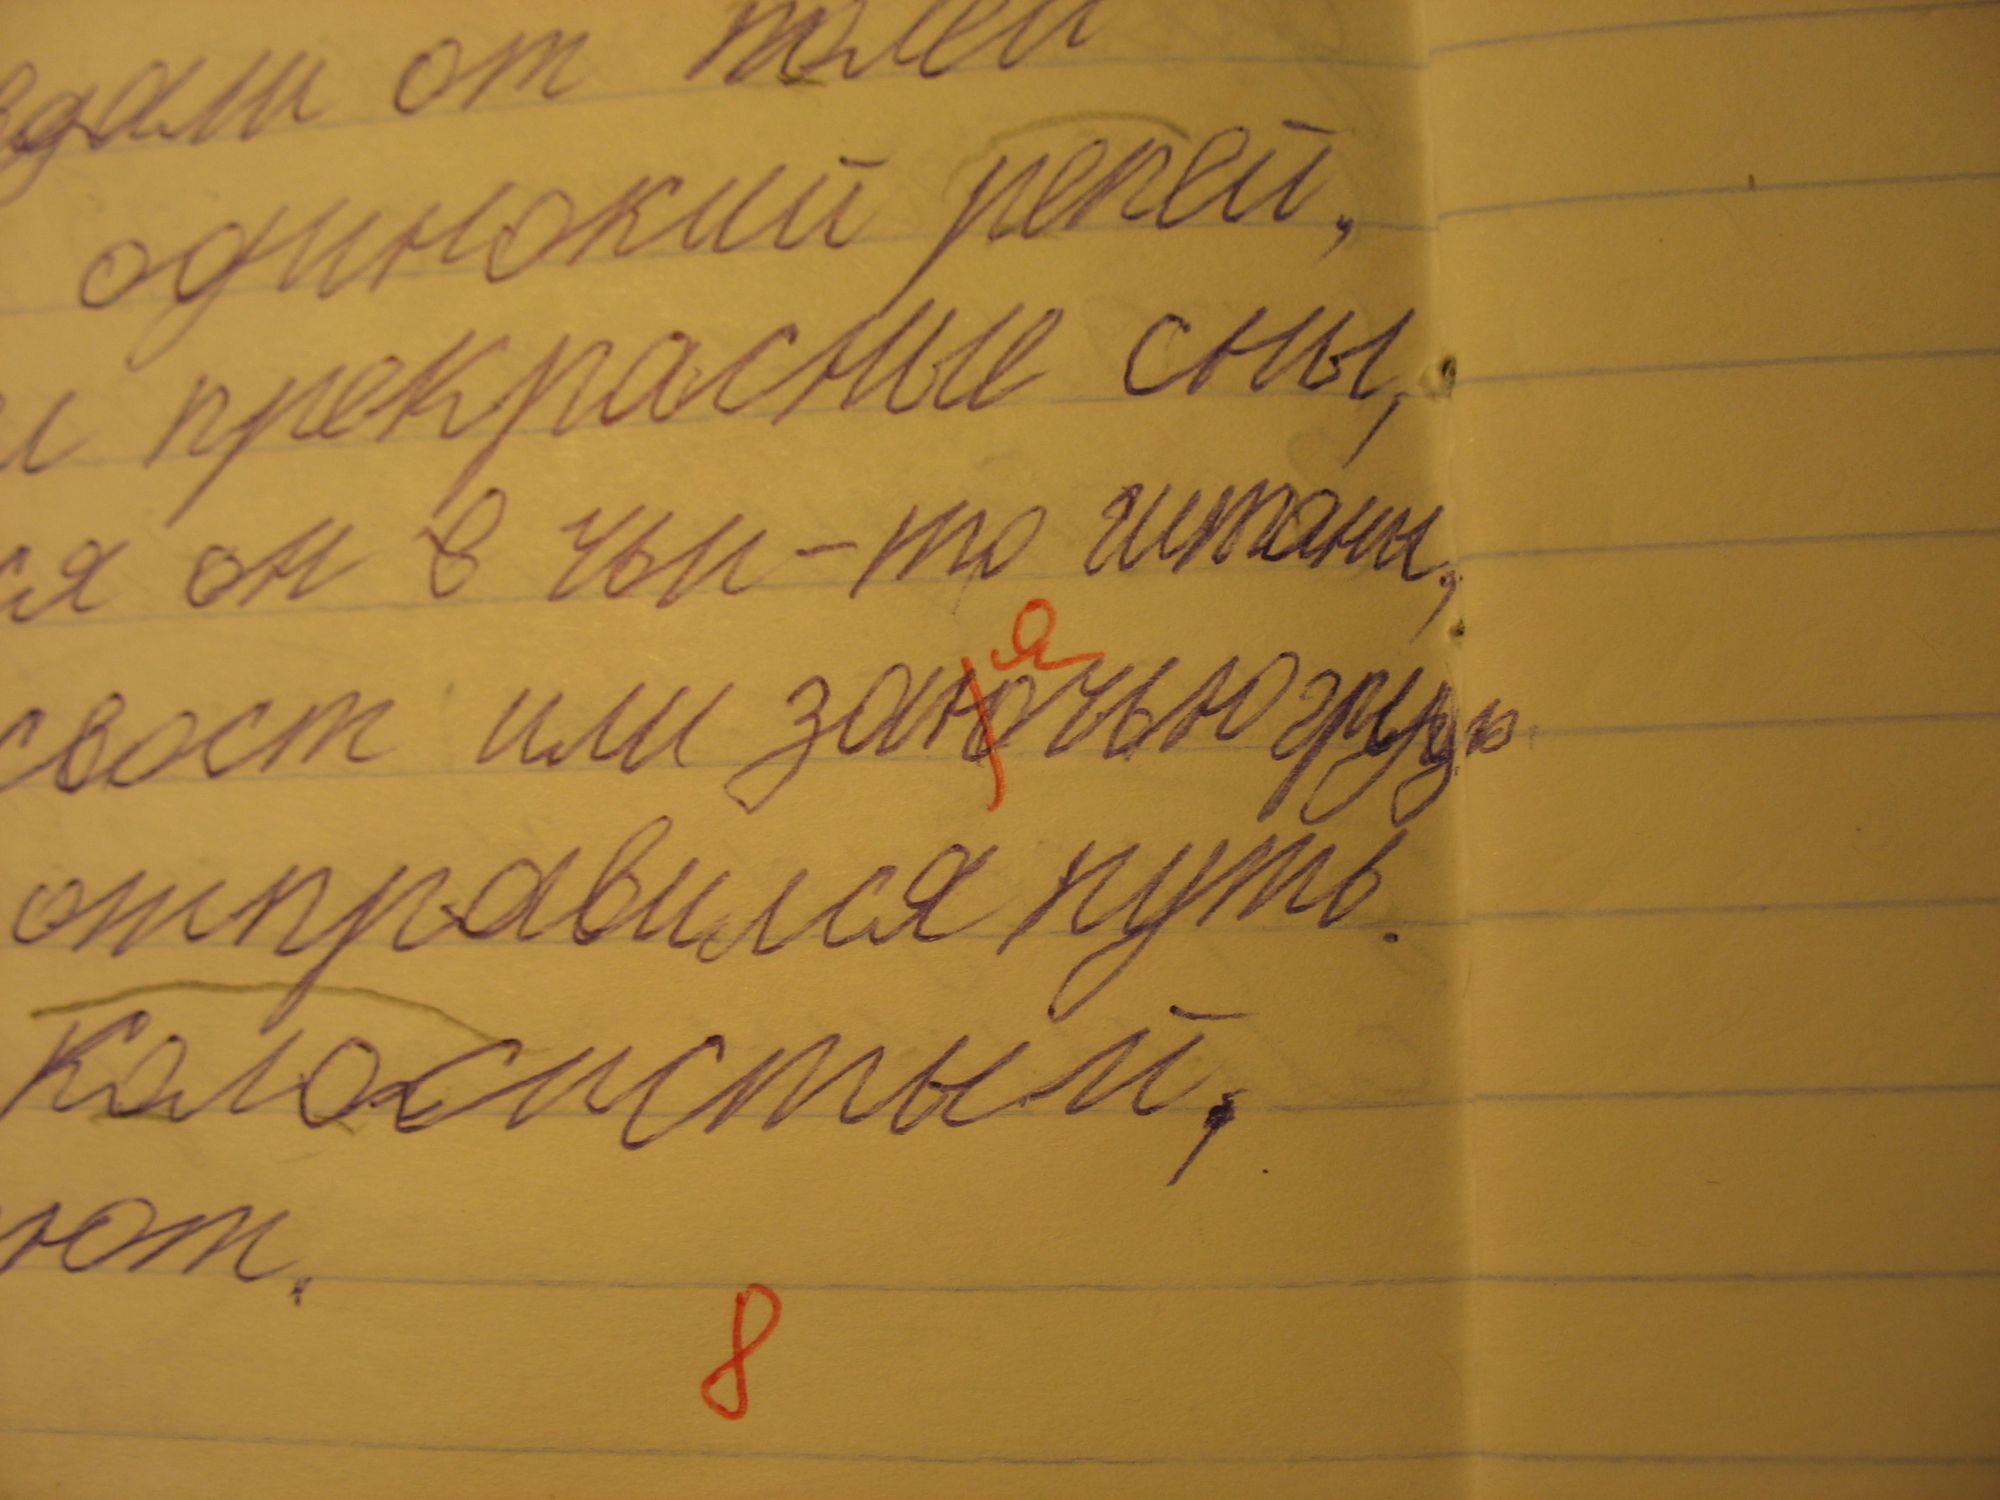 вдали от полей
одинокий репей,
и прекрасные сны,
ся он в чьи-то штаны,
я
свост или заночью грудь
отправился путь.
Колосистый,
ют.
8